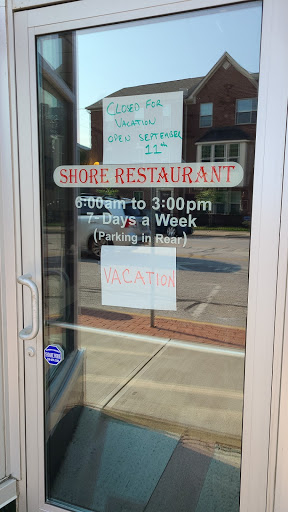 CLOSED FOR
VACATION
OPEN SEPTEMBER
11th
SHORE RESTAURANT
6:00am to 3:00pm
7-Days a Week
(Parking in Rear)
VACATION